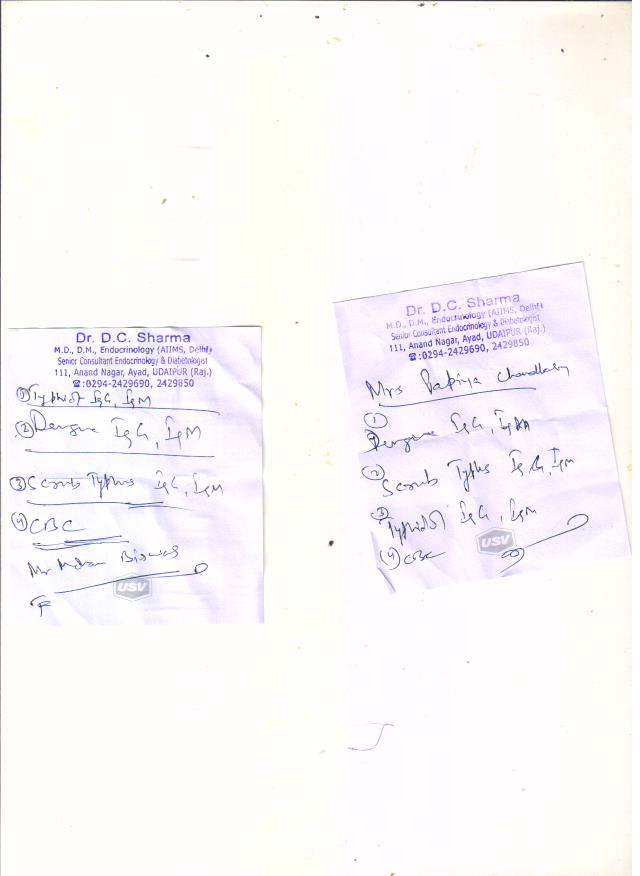 Dr. D.C. Sharma
M.D., D.M., Endocrinology (AIIMS, Delhi)
Senior Consultant Endocrinologist & Diabetologist
111, Anand Nagar, Ayad, UDAIPUR (Raj.)
☎:0294-2429690, 2429850
① Typhidot IgG, IgM
② Dengue IgG, IgM
③ Scrub Typhus IgG, IgM
④ CBC
Mr Biswas
USV
Dr. D.C. Sharma
M.D., D.M., Endocrinology (AIIMS, Delhi)
Senior Consultant Endocrinologist & Diabetologist
111, Anand Nagar, Ayad, UDAIPUR (Raj.)
☎:0294-2429690, 2429850
Mrs Papiya
①
Dengue IgG, IgM
②
Scrub Typhus IgG, IgM
③
Typhidot IgG, IgM
④ CBC
USV